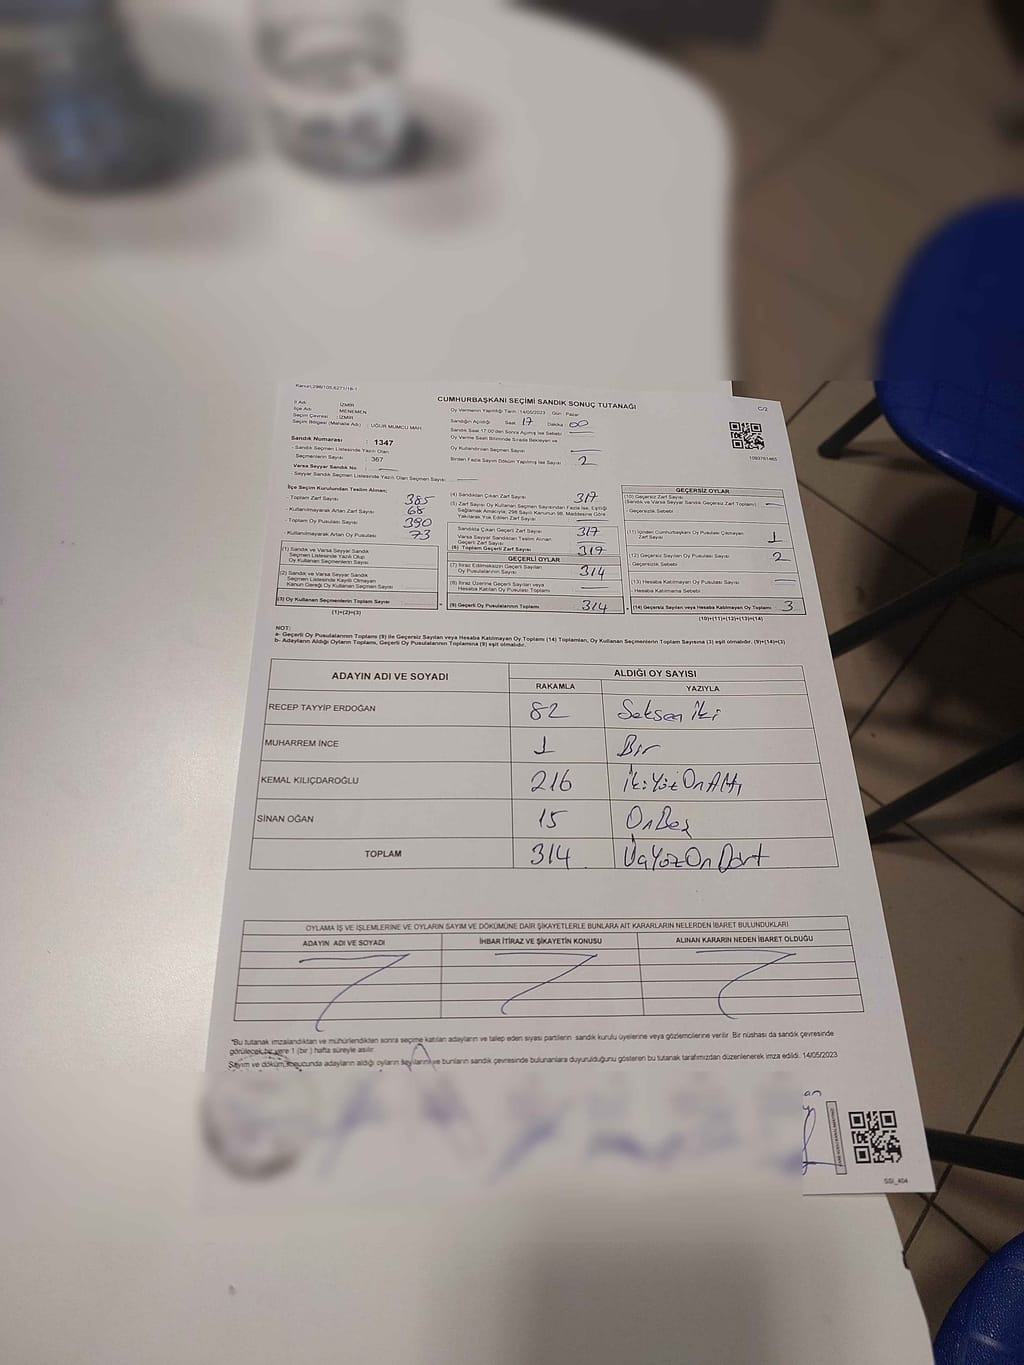 Kanun:298/105,6271/18-1
CUMHURBAŞKANI SEÇİMİ SANDIK SONUÇ TUTANAĞI
C/2
İl Adı : İZMİR
İlçe Adı : MENEMEN
Seçim Çevresi : İZMİR
Seçim Bölgesi (Mahalle Adı) : UĞUR MUMCU MAH.
Sandık Numarası : 1347
- Sandık Seçmen Listesinde Yazılı Olan
Seçmenlerin Sayısı : 367
Varsa Seyyar Sandık No :
- Seyyar Sandık Seçmen Listesinde Yazılı Olan Seçmen Sayısı :
Oy Vermenin Yapıldığı Tarih : 14/05/2023 Gün : Pazar
Sandığın Açıldığı Saat 17 Dakika 00
Sandık Saat 17:00'den Sonra Açılmış İse Sebebi
Oy Verme Saati Bitiminde Sırada Bekleyen ve
Oy Kullandırılan Seçmen Sayısı
Birden Fazla Sayım Döküm Yapılmış İse Sayısı : 2
1093761465
İlçe Seçim Kurulundan Teslim Alınan;
- Toplam Zarf Sayısı 385
- Kullanılmayarak Artan Zarf Sayısı 68
- Toplam Oy Pusulası Sayısı 390
- Kullanılmayarak Artan Oy Pusulası 73
(1) Sandık ve Varsa Seyyar Sandık
Seçmen Listesinde Yazılı Olup
Oy Kullanan Seçmenlerin Sayısı
(2) Sandık ve Varsa Seyyar Sandık
Seçmen Listesinde Kayıtlı Olmayan
Kanun Gereği Oy Kullanan Seçmen Sayısı
(3) Oy Kullanan Seçmenlerin Toplam Sayısı
(1)+(2)=(3)
(4) Sandıktan Çıkan Zarf Sayısı 317
(5) Zarf Sayısı Oy Kullanan Seçmen Sayısından Fazla İse, Eşitliği
Sağlamak Amacıyla; 298 Sayılı Kanunun 98. Maddesine Göre
Yakılarak Yok Edilen Zarf Sayısı
Sandıkta Çıkan Geçerli Zarf Sayısı 317
Varsa Seyyar Sandıktan Teslim Alınan
Geçerli Zarf Sayısı
(6) Toplam Geçerli Zarf Sayısı 317
GEÇERLİ OYLAR
(7) İtiraz Edilmeksizin Geçerli Sayılan
Oy Pusulalarının Sayısı 314
(8) İtiraz Üzerine Geçerli Sayılan veya
Hesaba Katılan Oy Pusulası Toplamı
(9) Geçerli Oy Pusulalarının Toplamı 314
GEÇERSİZ OYLAR
(10) Geçersiz Zarf Sayısı
(Sandık ve Varsa Seyyar Sandık Geçersiz Zarf Toplamı)
- Geçersizlik Sebebi
(11) İçinden Cumhurbaşkanı Oy Pusulası Çıkmayan
Zarf Sayısı 1
(12) Geçersiz Sayılan Oy Pusulası Sayısı 2
Geçersizlik Sebebi
(13) Hesaba Katılmayan Oy Pusulası Sayısı
- Hesaba Katılmama Sebebi
(14) Geçersiz Sayılan veya Hesaba Katılmayan Oy Toplamı 3
(10)+(11)+(12)+(13)=(14)
NOT:
a- Geçerli Oy Pusulalarının Toplamı (9) ile Geçersiz Sayılan veya Hesaba Katılmayan Oy Toplamı (14) Toplamları, Oy Kullanan Seçmenlerin Toplam Sayısına (3) eşit olmalıdır. (9)+(14)=(3)
b- Adayların Aldığı Oyların Toplamı, Geçerli Oy Pusulalarının Toplamına (9) eşit olmalıdır.
ADAYIN ADI VE SOYADI
ALDIĞI OY SAYISI
RAKAMLA YAZIYLA
RECEP TAYYİP ERDOĞAN 82 Seksen İki
MUHARREM İNCE 1 Bir
KEMAL KILIÇDAROĞLU 216 İkiYüzOnAltı
SİNAN OĞAN 15 OnBeş
TOPLAM 314 ÜçYüzOnDört
OYLAMA İŞ VE İŞLEMLERİNE VE OYLARIN SAYIM VE DÖKÜMÜNE DAİR ŞİKAYETLERLE BUNLARA AİT KARARLARIN NELERDEN İBARET BULUNDUKLARI
ADAYIN ADI VE SOYADI
İHBAR İTİRAZ VE ŞİKAYETİN KONUSU
ALINAN KARARIN NEDEN İBARET OLDUĞU
"Bu tutanak imzalandıktan ve mühürlendikten sonra seçime katılan adayların ve talep eden siyasi partilerin sandık kurulu üyelerine veya gözlemcilerine verilir. Bir nüshası da sandık çevresinde
görülecek bir yere 1 (bir) hafta süreyle asılır.
Sayım ve döküm sonucunda adayların aldığı oyların sayılarını ve bunların sandık çevresinde bulunanlara duyurulduğunu gösteren bu tutanak tarafımızdan düzenlenerek imza edildi. 14/05/2023
SSI_404